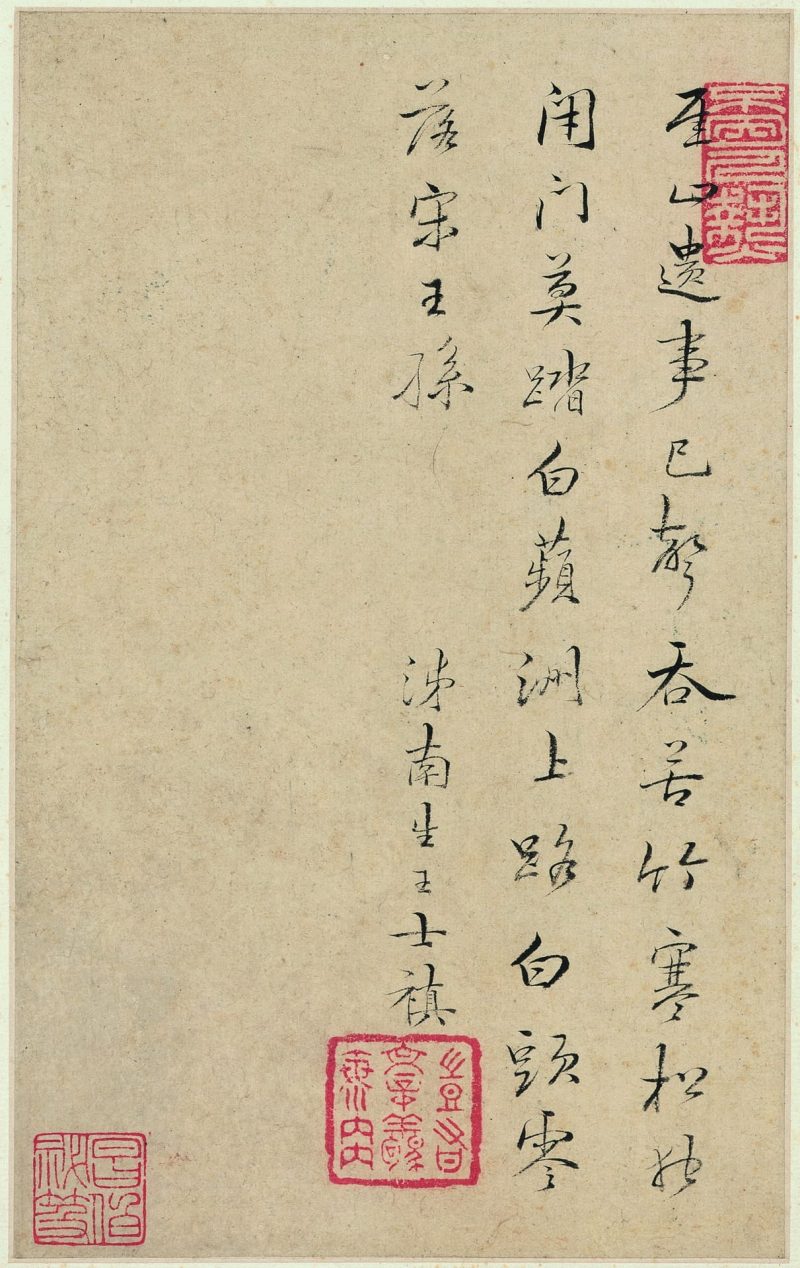 厓山遺事已聲吞苦竹寒松獨
閉门莫踏白蘋洲上路白頭零
落宋王孫
济南生王士禛